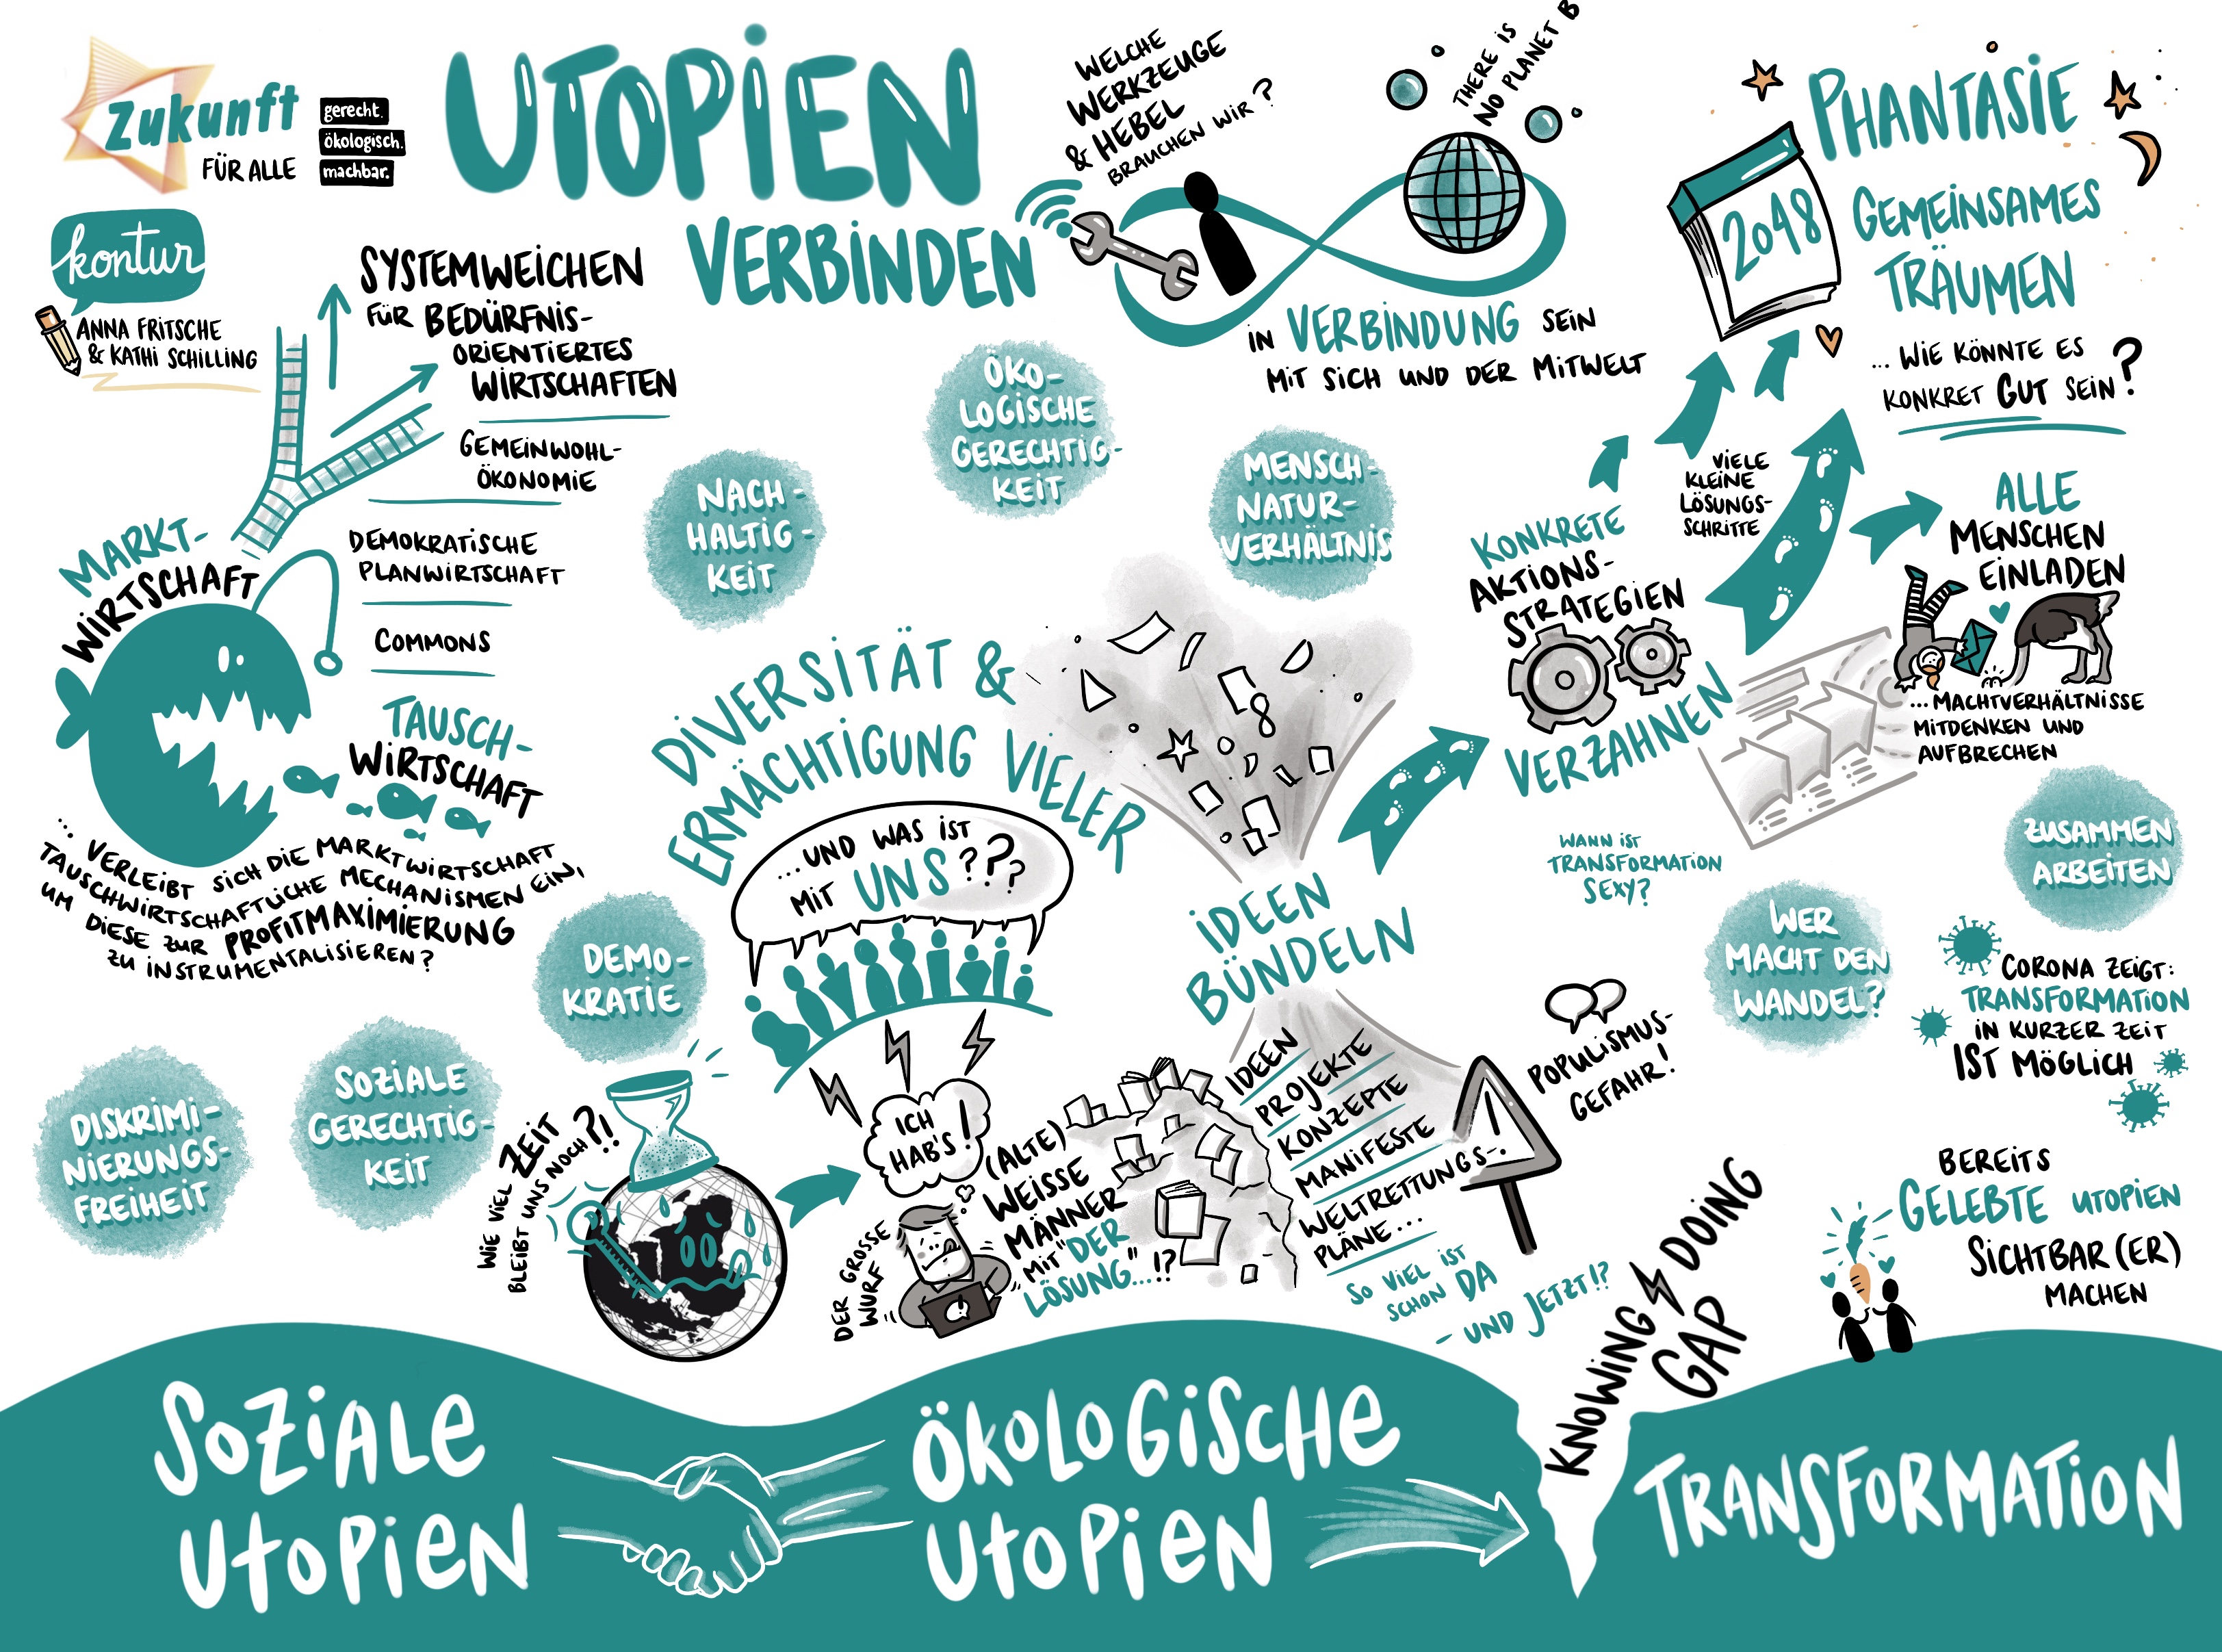 Zukunft
FÜR ALLE
gerecht.
ökologisch.
machbar.
kontur
ANNA FRITSCHE
& KATHI SCHILLING
UTOPIEN
VERBINDEN
WELCHE
WERKZEUGE
& HEBEL
BRAUCHEN WIR?
THERE IS
NO PLANET B
IN VERBINDUNG SEIN
MIT SICH UND DER MITWELT
PHANTASIE
2048
GEMEINSAMES
TRÄUMEN
... WIE KÖNNTE ES
KONKRET GUT SEIN?
SYSTEMWEICHEN
FÜR BEDÜRFNIS-
ORIENTIERTES
WIRTSCHAFTEN
GEMEINWOHL-
ÖKONOMIE
DEMOKRATISCHE
PLANWIRTSCHAFT
COMMONS
MARKT-
WIRTSCHAFT
TAUSCH-
WIRTSCHAFT
... VERLEIBT SICH DIE MARKTWIRTSCHAFT
TAUSCHWIRTSCHAFTLICHE MECHANISMEN EIN,
UM DIESE ZUR PROFITMAXIMIERUNG
ZU INSTRUMENTALISIEREN?
NACH-
HALTIG-
KEIT
ÖKO-
LOGISCHE
GERECHTIG-
KEIT
MENSCH-
NATUR-
VERHÄLTNIS
DIVERSITÄT &
ERMÄCHTIGUNG VIELER
...UND WAS IST
MIT UNS???
KONKRETE
AKTIONS-
STRATEGIEN
VERZAHNEN
VIELE
KLEINE
LÖSUNGS-
SCHRITTE
ALLE
MENSCHEN
EINLADEN
...MACHTVERHÄLTNISSE
MITDENKEN UND
AUFBRECHEN
WANN IST
TRANSFORMATION
SEXY?
ZUSAMMEN
ARBEITEN
WER
MACHT DEN
WANDEL?
CORONA ZEIGT:
TRANSFORMATION
IN KURZER ZEIT
IST MÖGLICH
IDEEN
BÜNDELN
DEMO-
KRATIE
SOZIALE
GERECHTIG-
KEIT
DISKRIMI-
NIERUNGS-
FREIHEIT
WIE VIEL ZEIT
BLEIBT UNS NOCH?!
ICH
HAB'S!
DER GROSSE
WURF
(ALTE)
WEISSE
MÄNNER
MIT "DER
LÖSUNG..."!?
IDEEN
PROJEKTE
KONZEPTE
MANIFESTE
WELTRETTUNGS-
PLÄNE...
SO VIEL IST
SCHON DA
- UND JETZT!?
!
POPULISMUS-
GEFAHR!
KNOWING DOING
GAP
BEREITS
GELEBTE UTOPIEN
SICHTBAR(ER)
MACHEN
SOZIALE
UTOPIEN
ÖKOLOGISCHE
UTOPIEN
TRANSFORMATION